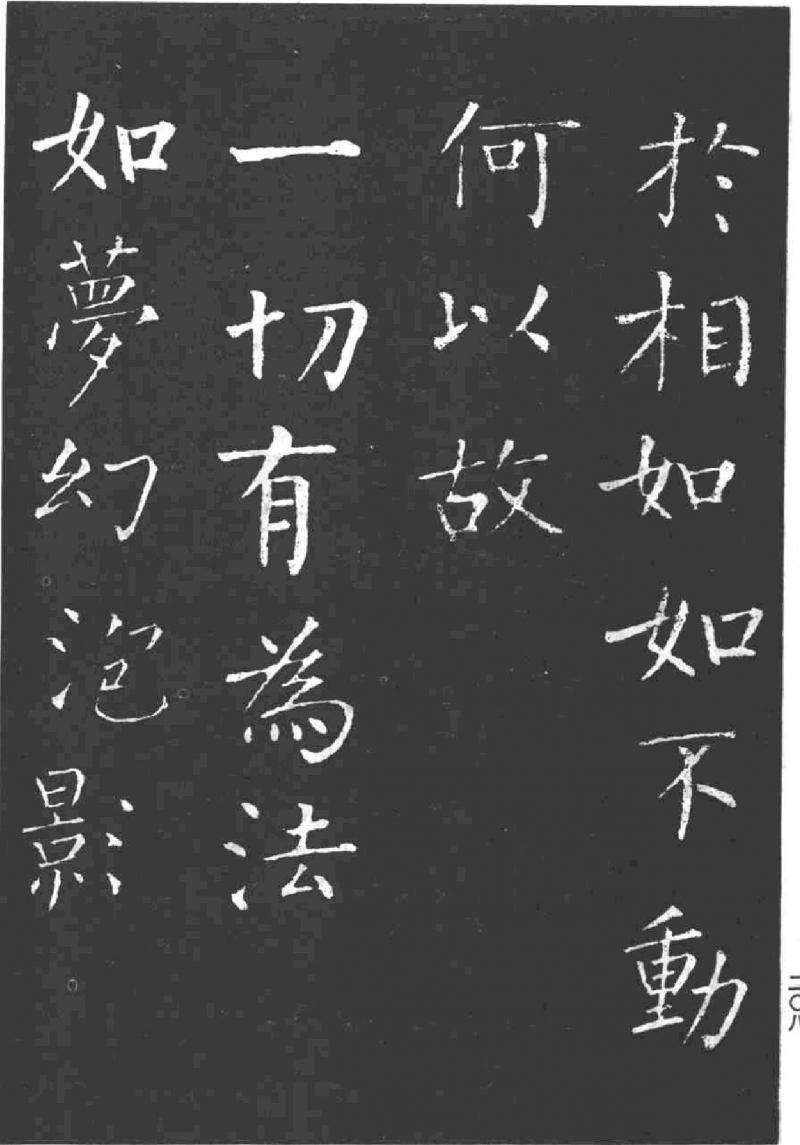 於相如如不動
何以故
一切有為法
如夢幻泡影
二〇八